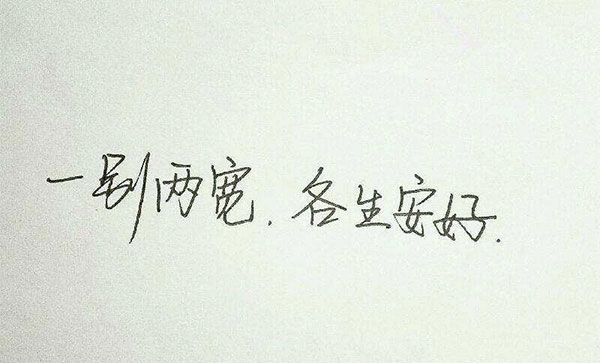 一别两宽.各生安好.